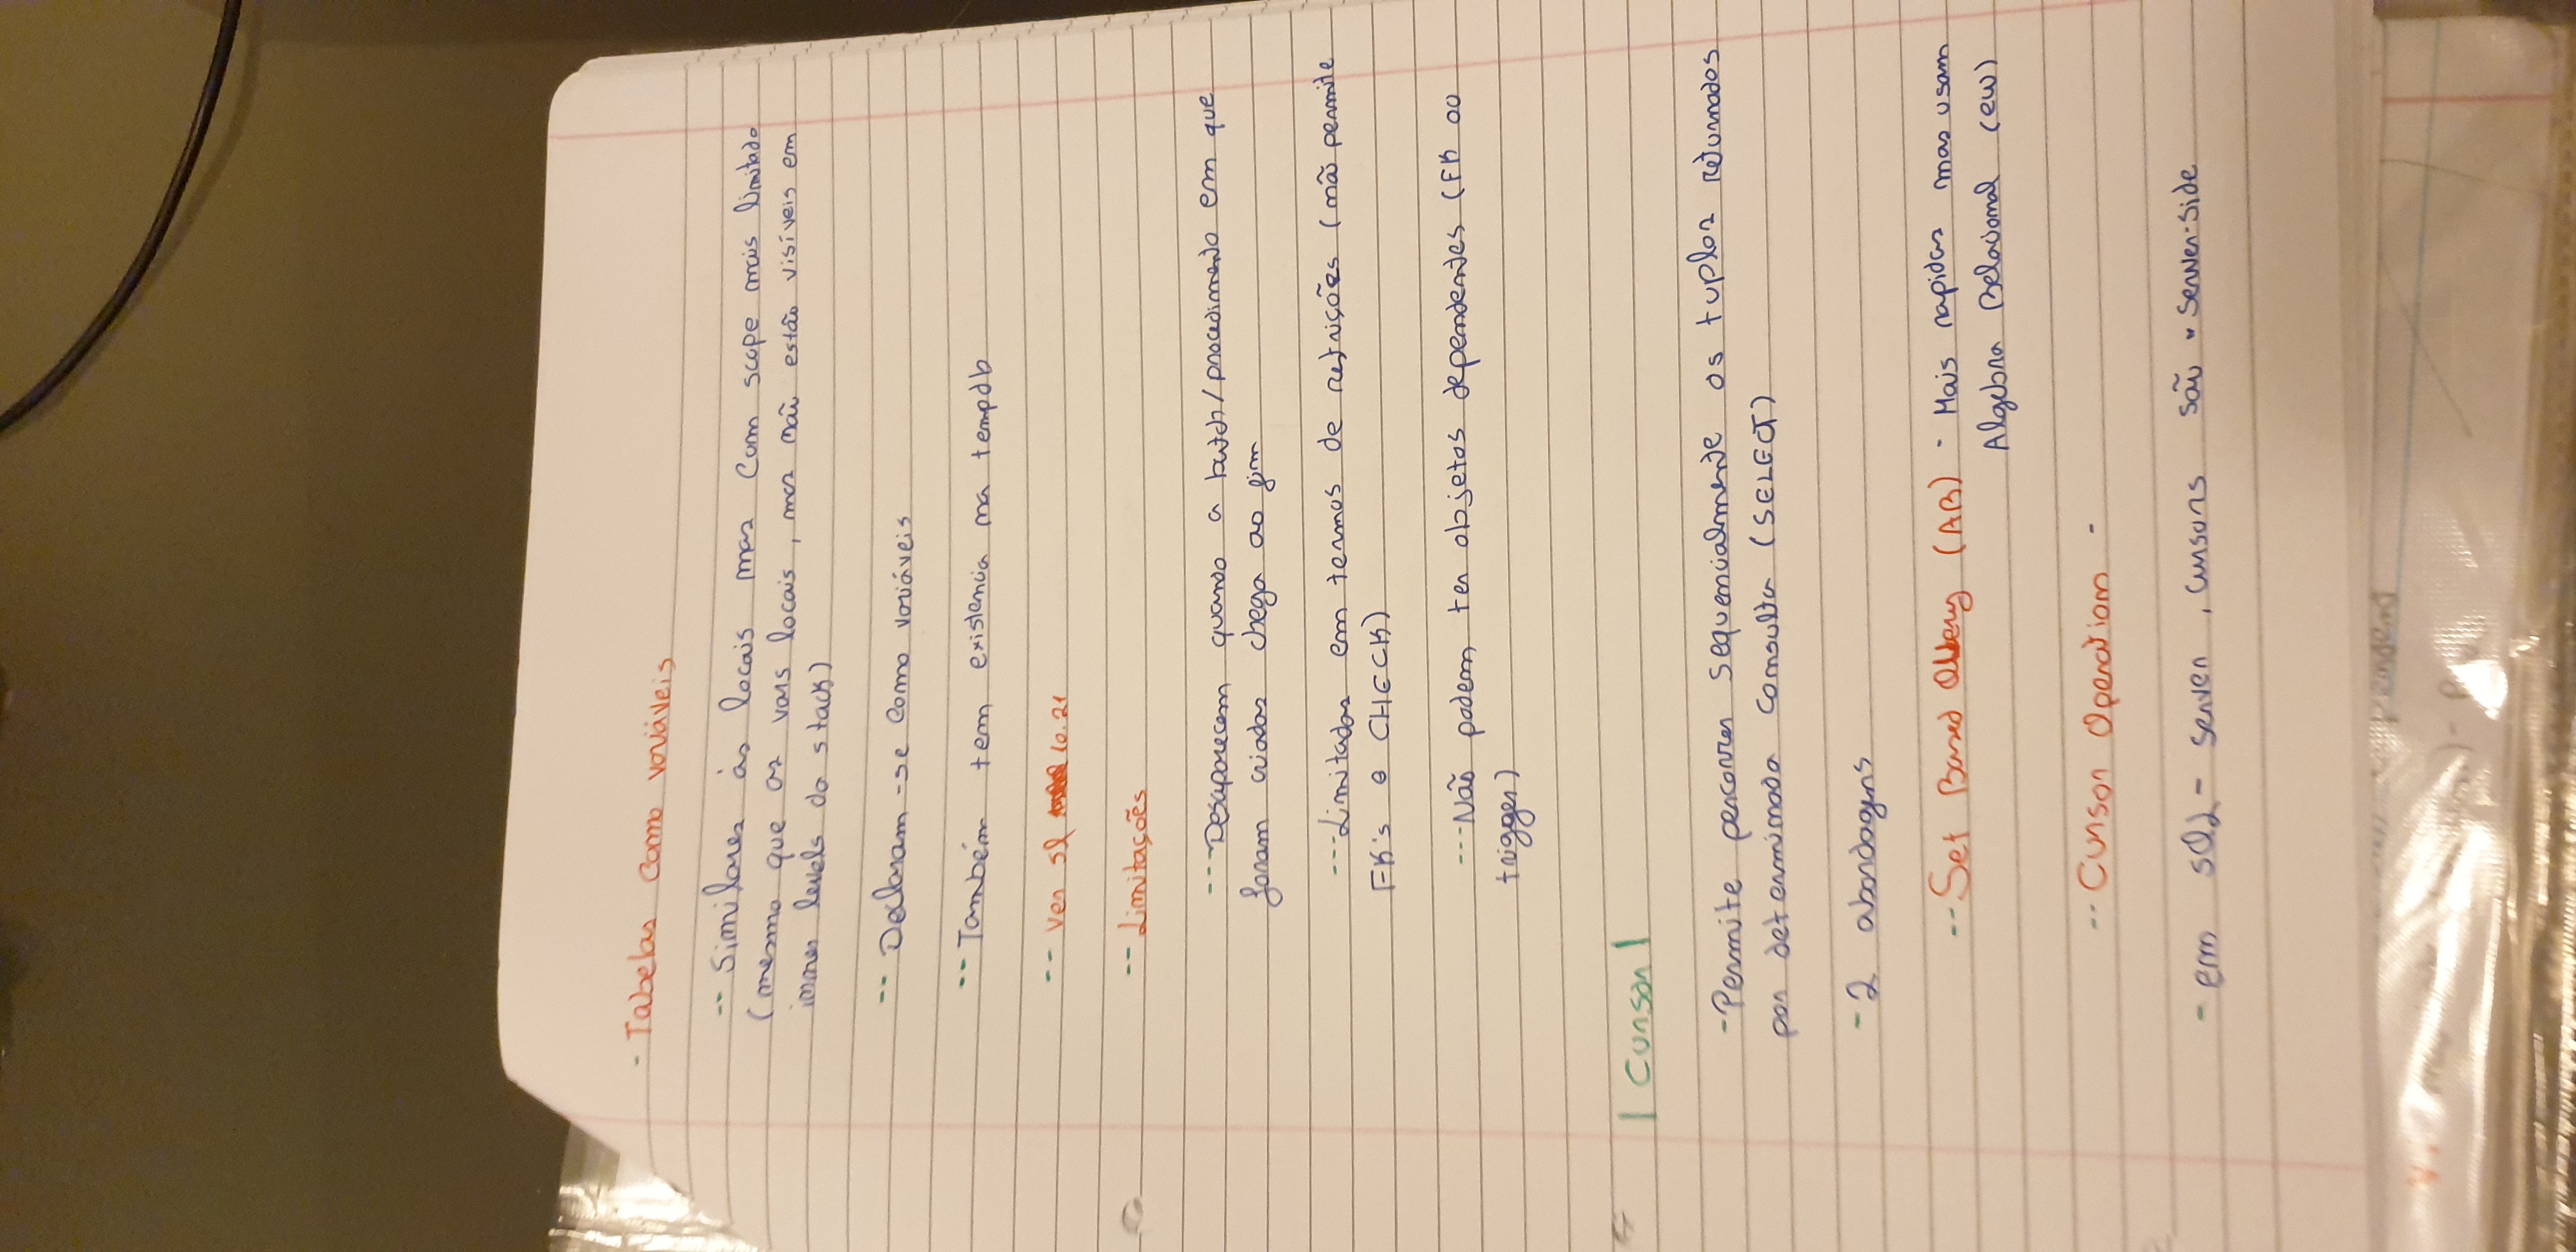 - Tabelas como variáveis
-- Similares às locais mas com scope mais limitado
(mesmo que as vars locais, mas não estão visíveis em
inner levels da stack)
-- Declaram-se como variáveis
-- Também tem existencia na tempdb
-- Ver sl 10.21
-- Limitações
--- Desaparecem quando a batch/procedimento em que
foram criadas chega ao fim
--- Limitadas em termos de restrições (não permite
FK's e CHECK)
--- Não podem ter objetos dependentes (FK ou
trigger)
| Cursor |
- Permite percorrer sequencialmente os tuplos retornados
por determinada consulta (SELECT)
- 2 abordagens
-- Set Based Query (AR) - Mais rapidas mas usam
Algebra Relacional (ew)
-- Cursor Operation -
- em SQL-server, cursors são server-side